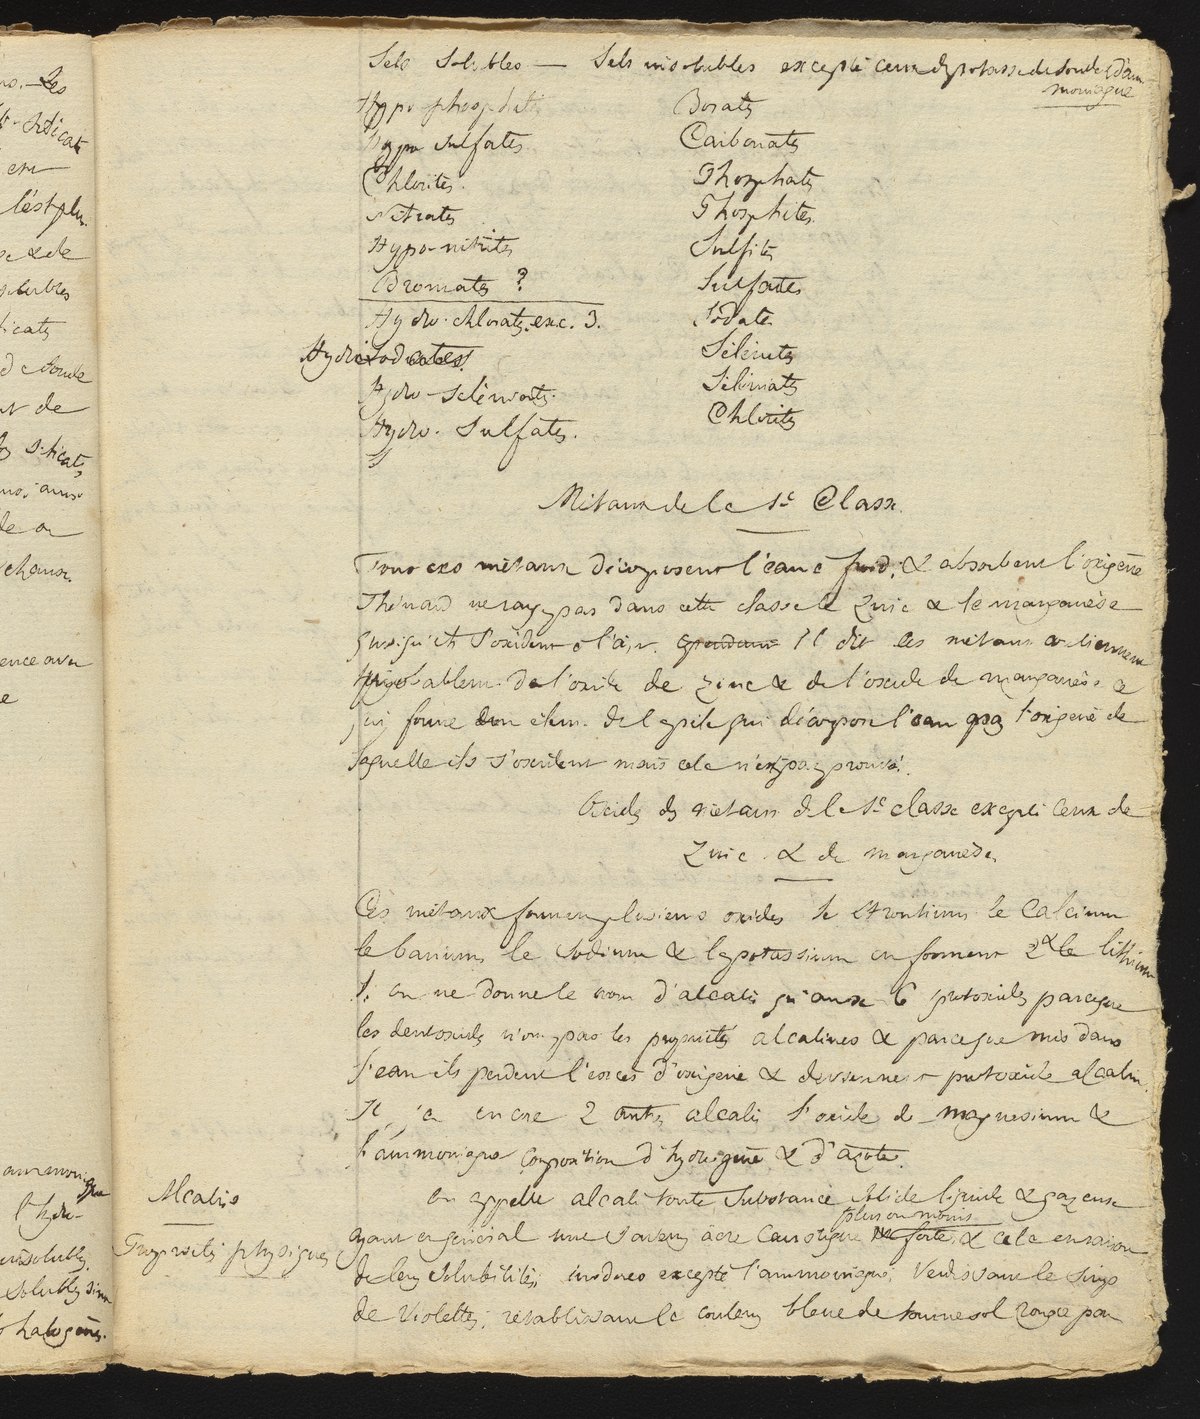 Sels Solubles — Sels insolubles excepté ceux de potasse de soude & d'am-
moniaque
Hypo-phosphites Borates
hypo sulfates Carbonates
Chlorites. Phosphates
Nitrates Phosphites
Hypo-nitrites Sulfites
Bromates ? Sulfates
Hydro-chlorates. exc. 3. Iodates
Hydriodates. Séléniates
Hydro-Séléniates. Séléniates
Hydro-Sulfates. Chlorites
Métaux de la 1e Classe.
Tous ces métaux décomposent l'eau à froid, & absorbent l'oxigène
Thénard ne range pas dans cette classe le Zinc & le manganèse
quoiqu'ils s'oxident à l'air. Cependant Il dit ces métaux contiennent
probablem. de l'oxide de zinc & de l'oxide de manganèse ce
qui forme un élém. de la pile qui décompose l'eau par l'oxigène de
laquelle ils s'oxident mais cela n'est pas prouvé.
Oxides des métaux de la 1e classe excepté ceux de
Zinc & de manganèse
Ces métaux forment plusieurs oxides le strontium le Calcium
le barium, le sodium & le potassium en forment 2 & le lithium
1. on ne donne le nom d'alcalis qu'aux 6 protoxides parceque
les deutoxides n'ont pas les propriétés alcalines & parceque mis dans
l'eau ils perdent l'excès d'oxigène & deviennent protoxide alcalin.
Il y a encore 2 autres alcalis l'oxide de magnesium &
l'ammoniaque composition d'hydrogène & d'azote.
Alcalis
On appelle alcali toute Substance solide liquide & gazeuse
plus ou moins
Propriétés physiques
ayant en général une saveur âcre Caustique forte, & cela en raison
de leur solubilité, inodores excepté l'ammoniaque, Verdissant le sirop
de Violettes, rétablissant la couleur bleue de tournesol rougie par